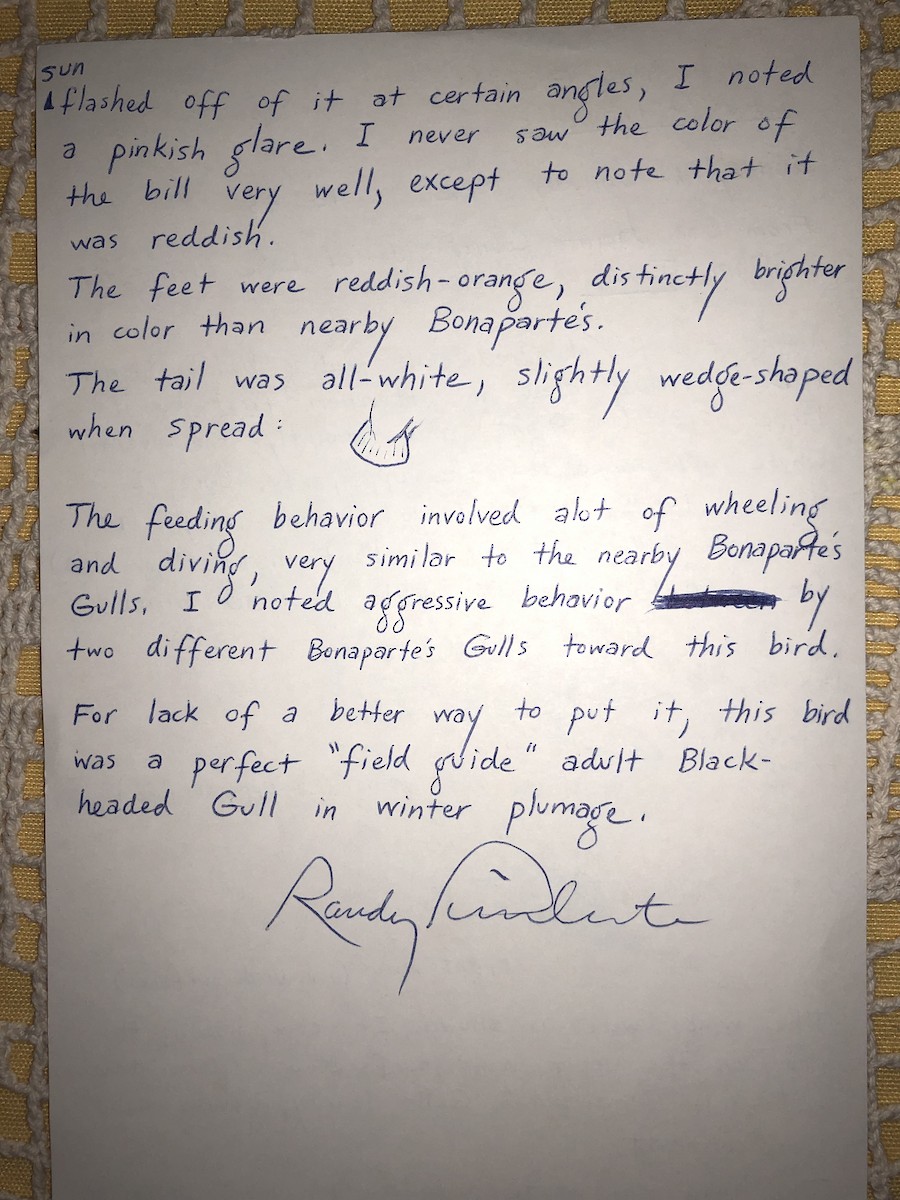 sun
flashed off of it at certain angles, I noted
a pinkish glare. I never saw the color of
the bill very well, except to note that it
was reddish.
The feet were reddish-orange, distinctly brighter
in color than nearby Bonaparte's.
The tail was all-white, slightly wedge-shaped
when spread:
The feeding behavior involved alot of wheeling
and diving, very similar to the nearby Bonaparte's
Gulls. I noted aggressive behavior by
two different Bonaparte's Gulls toward this bird.
For lack of a better way to put it, this bird
was a perfect "field guide" adult Black-
headed Gull in winter plumage.
Randy